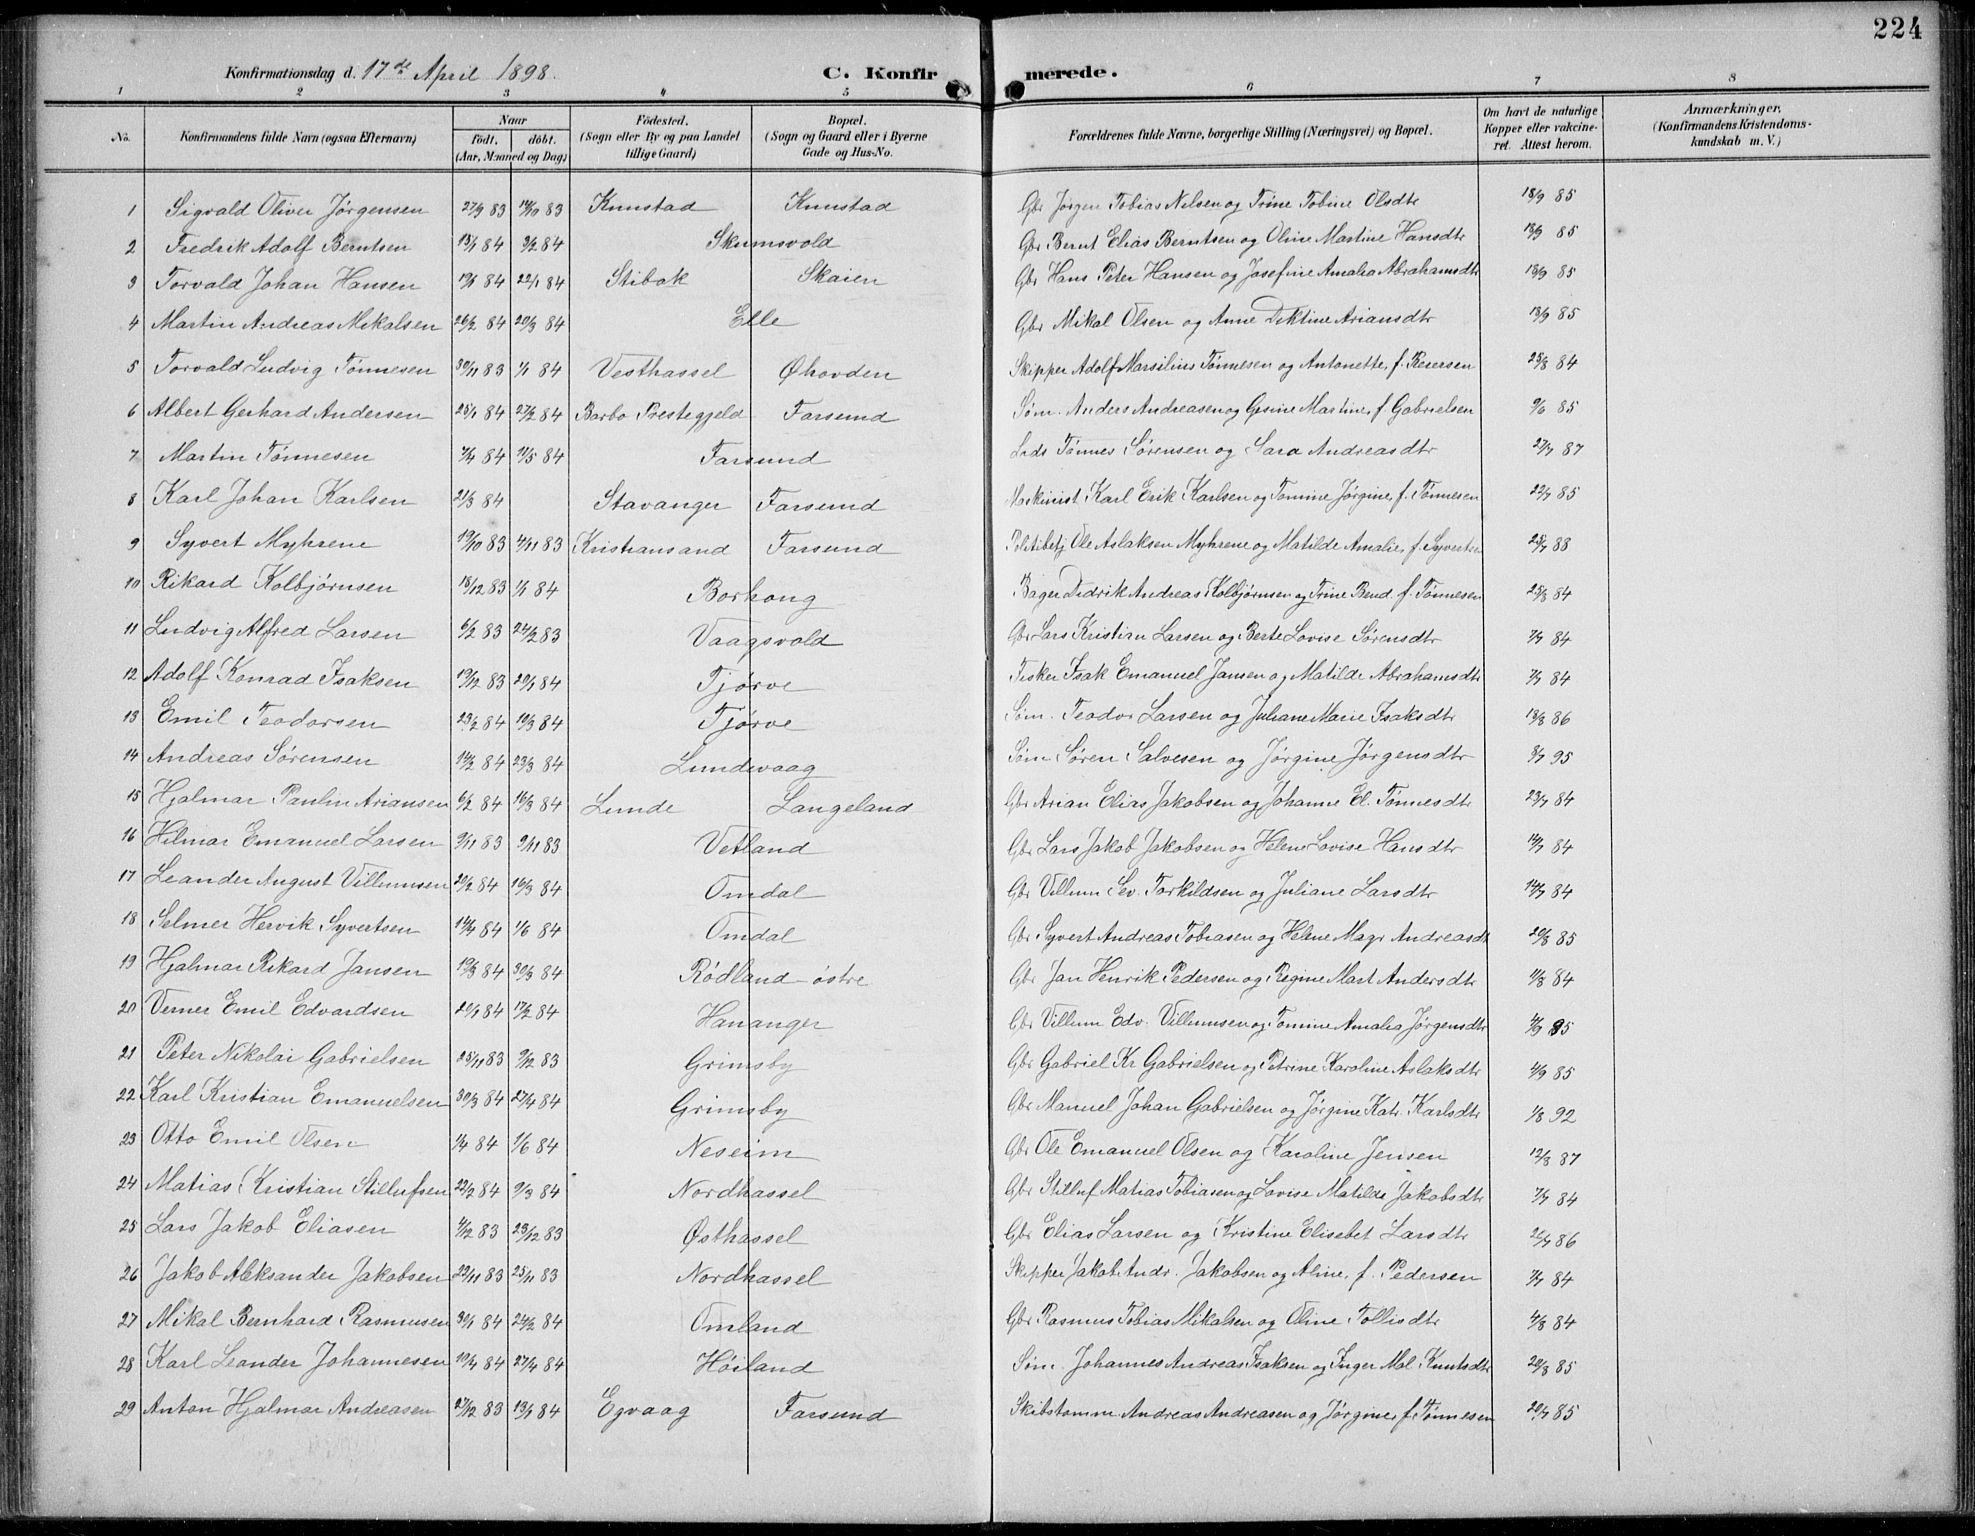 224
Konfirmationsdag d. 17de April 1898. C. Konfirmerede.
1 2 3 4 5 6 7 8
No. Konfirmandens fulde Navn (ogsaa Efternavn) Naar født. døbt. (Aar, Maaned og Dag) Fødested. (Sogn eller By og paa Landet tillige Gaard) Bopæl. (Sogn og Gaard eller i Byerne Gade og Hus-No. Forældrenes fulde Navne, borgerlige Stilling (Næringsvei) og Bopæl. Om havt de naturlige Kopper eller vakcineret. Attest herom. Anmærkninger. (Konfirmandens Kristendomskundskab m. V.)
1 Sigvald Oliver Jørgensen 27/9 83 14/10 83 Knustad Knustad Gbr Jørgen Tobias Nilsen og Trine Tobine Olsdtr 18/9 85
2 Fredrik Adolf Berntsen 13/1 84 3/2 84 Skumsvold Gbr Bernt Elias Berntsen og Oline Martine Hansdtr 18/9 85
3 Torvald Johan Hansen 84 22/1 84 Stibok Skaien Gbr Hans Peter Hansen og Josefine Amalia Abrahamsdtr 18/9 85
4 Martin Andreas Mikalsen 26/2 84 20/3 84 Elle Gbr Mikal Olsen og Anne Ariansdtr 18/9 85
5 Torvald Ludvig Tønnesen 30/11 83 1/1 84 Vesthassel Øhovden Skipper Adolf Marsilius Tønnesen og Antonette, f. Reiersen 25/8 84
6 Albert Gerhard Andersen 25/1 84 27/2 84 Barbo Prestegjeld Farsund Søm. Anders Andreasen og Gesine Martine, f. Gabrielsen 9/6 85
7 Martin Tønnesen 7/4 84 11/5 84 Farsund Lods Tønnes Sørensen og Sara Andreasdtr 27/7 87
8 Karl Johan Karlsen 21/3 84 Stavanger Farsund Maskinist Karl Erik Karlsen og Tomine Jørgine, f. Tønnesen 22/7 85
9 Syvert Myhrene 19/10 83 4/11 83 Kristiansand Farsund Politibetj Ole Aslaksen Myhrene og Matilde Amalie, f. Syvertsen 25/7 88
10 Rikard Kolbjørnsen 18/12 83 1/1 84 Borhoug Bager Didrik Andreas Kolbjørnsen og Trine Bend. f. Tønnesen 25/8 84
11 Ludvig Alfred Larsen 6/2 83 24/2 83 Vaagsvold Gbr Lars Kristian Larsen og Berte Lovise Sørensdtr 7/7 84
12 Adolf Konrad Isaksen 19/12 83 20/1 84 Tjørve Fisker Isak Emanuel Jansen og Matilde Abrahamsdtr 7/7 84
13 Emil Teodorsen 23/2 84 19/3 84 Tjørve Søm. Teodor Larsen og Juliane Marie Isaksdtr 13/8 86
14 Andreas Sørensen 14/2 84 23/3 84 Lundevaag Søm Søren Salvesen og Jørgine Jørgensdtr 8/7 95
15 Hjalmar Paulin Ariansen 6/2 84 16/3 84 Lunde Langeland Gbr Arian Elias Jakobsen og Johanne El. Tønnesdtr 23/7 84
16 Hilmar Emanuel Larsen 9/11 83 9/11 83 Vetland Gbr Lars Jakob Jakobsen og Helene Lovise Hansdtr 14/7 84
17 Leander August Villumsen 20/2 84 16/3 84 Omdal Gbr Villum Sev. Torkildsen og Juliane Larsdtr 14/7 84
18 Selmer Hervik Syvertsen 14/4 84 1/6 84 Omdal Gbr Syvert Andreas Tobiasen og Helene Magr Andreasdtr 20/8 85
19 Hjalmar Rikard Jansen 19/3 84 30/3 84 Rødland østre Gbr Jan Henrik Pedersen og Regine Mart Andersdtr 11/8 84
20 Verner Emil Edvardsen 20/1 84 17/2 84 Hananger Gbr Villum Edv. Villumsen og Tomine Amalia Jørgensdtr 4/9 85
21 Peter Nikolai Gabrielsen 25/11 83 9/12 83 Grimsby Gbr Gabriel Kr Gabrielsen og Petrine Karoline Aslaksdtr 4/9 85
22 Karl Kristian Emanuelsen 30/3 84 27/4 84 Grimsby Gbr Manuel Johan Gabrielsen og Jørgine Katr. Karlsdtr 1/8 92
23 Otto Emil Olsen 1/4 84 1/6 84 Neseim Gbr Ole Emanuel Olsen og Karoline Jensen 12/8 87
24 Matias Kristian Stillufsen 22/2 84 9/3 84 Nordhassel Gbr Stilluf Matias Tobiasen og Lovise Matilde Jakobsdtr 7/7 84
25 Lars Jakob Eliasen 4/12 83 23/12 83 Østhassel Gbr Elias Larsen og Kristine Elisebet Larsdtr 86
26 Jakob Aleksander Jakobsen 22/11 83 25/11 83 Nordhassel Skipper Jakob Andr. Jakobsen og Aline, f. Pedersen 7/7 84
27 Mikal Bernhard Rasmusen 30/1 84 24/2 84 Omland Gbr Rasmus Tobias Mikalsen og Oline Tollisdtr 4/8 84
28 Karl Leander Johannesen 10/4 84 27/4 84 Høiland Søm. Johannes Andreas Isaksen og Inger Mal. Knutsdtr 20/8 85
29 Anton Hjalmar Andreasen 27/12 83 13/1 84 Egvaag Farsund Skibstømm. Andreas Andreasen og Jørgine, f. Tønnesen 20/7 85